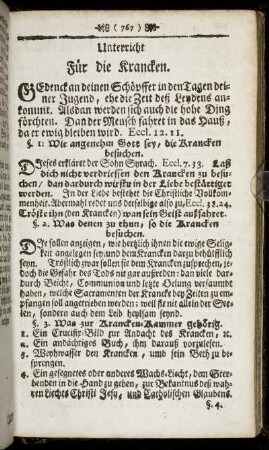 ( 767 )
Unterricht
Für die Krancken.
GEdenck an deinen Schöpffer in den Tagen dei-
ner Jugend, ehe die Zeit deß Leydens an-
kommt. Alsdan werden sich auch die hohe Ding
förchten. Dan der Mensch fahret in das Hauß,
da er ewig bleiben wird. Eccl. 12. 11.
§. 1. Wie angenehm Gott sey, die Krancken
besuchen.
DJeses erkläret der Sohn Syrach. Eccl. 7. 33. Laß
dich nicht verdriessen den Krancken zu besu-
chen / dan dardurch wirstu in der Liebe bestättiget
werden. In der Liebe bestehet die Christliche Vollkom-
menheit. Abermahl redet uns derselbige also zu, Eccl. 38. 24.
Tröste ihn (den Krancken) wan sein Geist außfahret.
§. 2. Was denen zu thun, so die Krancken
besuchen.
DJe sollen anzeigen, wie hertzlich ihnen die ewige Selig-
keit angelegen sey, und dem Krancken darzu behülfflich
seyn. Tröstlich zwar sollen sie dem Krancken zusprechen, je-
doch die Gefahr des Tods nit gar außreden: dan viele dar-
durch Beicht, Communion und letzte Oelung versaumt
haben, welche Sacramenten der Krancke bey Zeiten zu em-
pfangen soll angetrieben werden: weil sie nit allein der See-
len, sondern auch dem Leib heylsam seynd.
§. 3. Was zur Krancken-Kammer gehörig.
1. Ein Crucifix-Bild zur Andacht des Krancken, ꝛc.
2. Ein andächtiges Buch, ihm darauß vorzulesen.
3. Weyhwasser den Krancken, und sein Beth zu be-
sprengen.
4. Ein gesegnetes oder anderes Wachs-Liecht, dem Ster-
benden in die Hand zu geben, zur Bekantnus deß wah-
ren Liechts Christi Jesu, und Catholischen Glaubens.
§. 4.